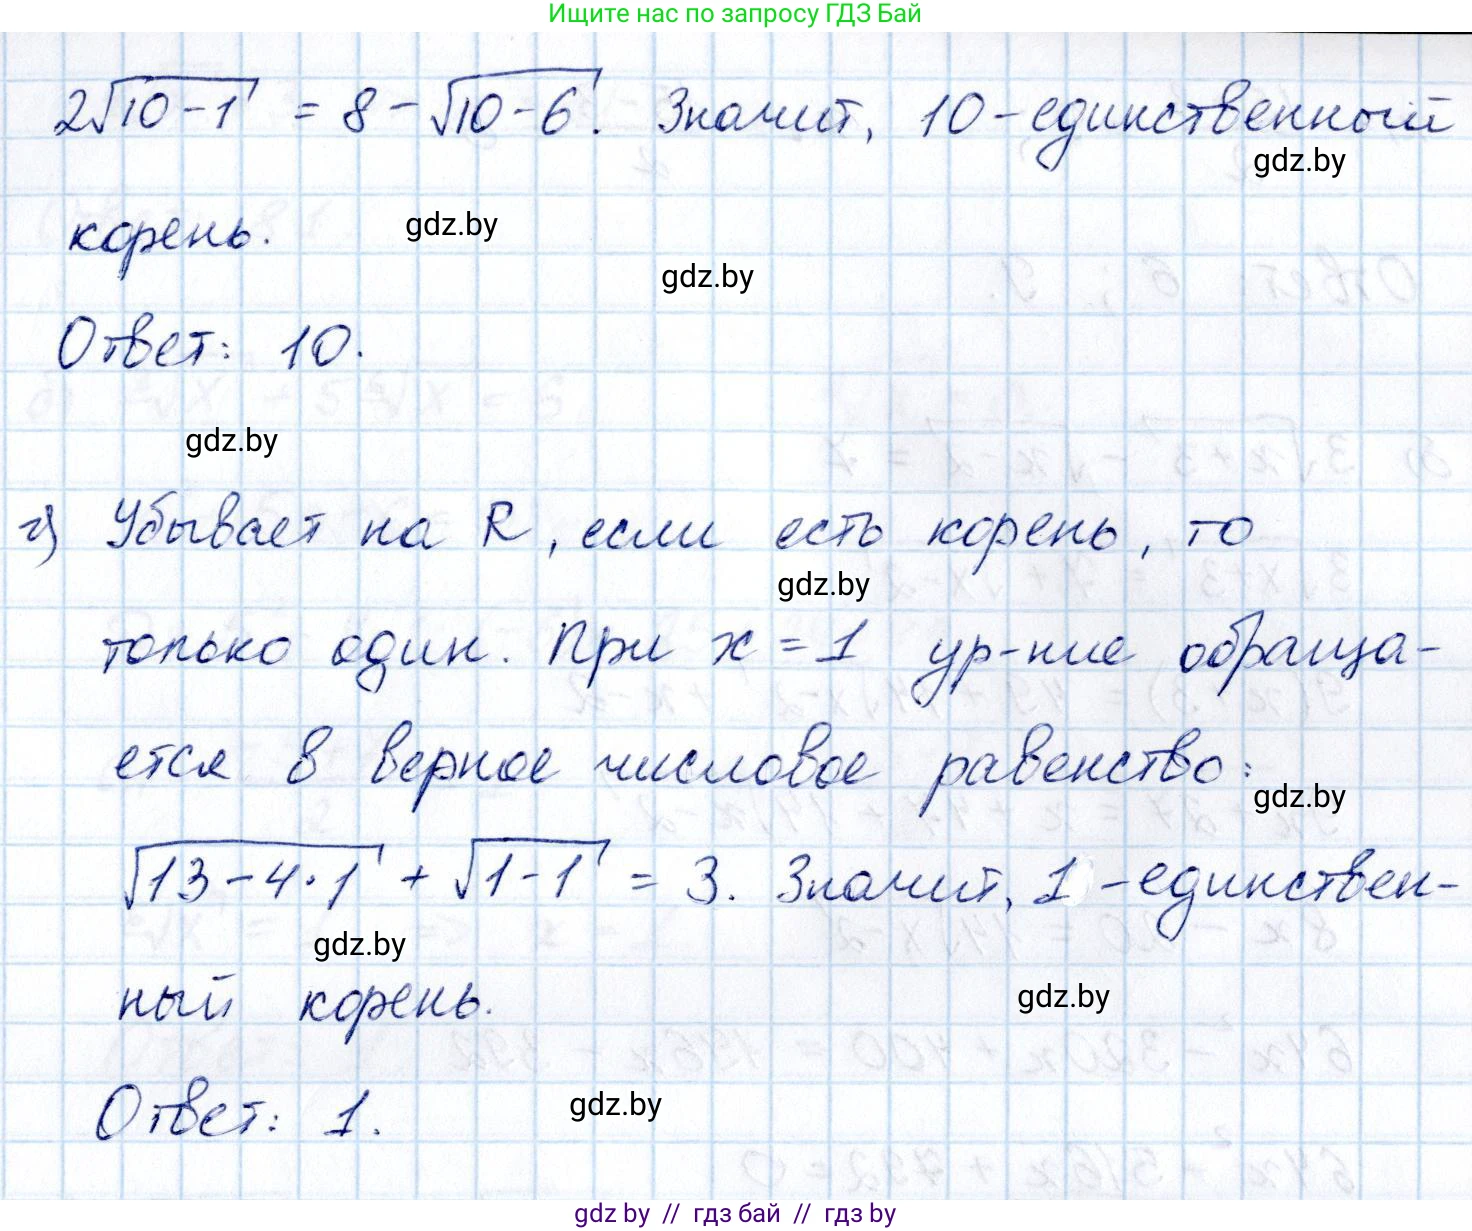 Ищите нас по запросу ГДЗ Бай
2√10-1 = 8-√10-6. Значит, 10-единственный
gdz.by
корень.
gdz.by
gdz.by
Ответ: 10.
gdz.by
г) Убывает на R, если есть корень, то
gdz.by
только один. При x=1 ур-ние обраща-
ется в верное числовое равенство:
gdz.by
√13-4·1 + √1-1 = 3. Значит, 1-единствен-
gdz.by
ный корень.
gdz.by
Ответ: 1.
gdz.by
gdz by // гдз бай // гдз by